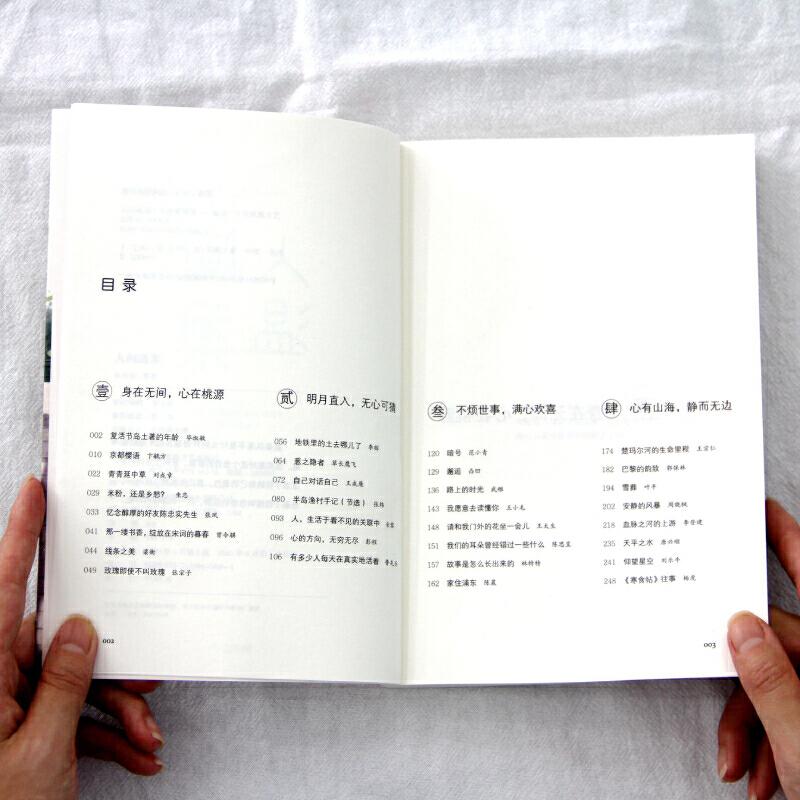 目录
壹 身在无间，心在桃源
002 复活节岛土著的年龄 毕淑敏
010 京都樱语 卞毓方
022 青青延中草 刘成章
029 米粉，还是乡愁？
033 忆念醇厚的好友陈忠实先生 张凤
041 那一缕书香，绽放在宋词的暮春 曾令琪
044 线条之美 梁衡
049 玫瑰即使不叫玫瑰 张宗子
002
贰 明月直入，无心可猜
056 地铁里的土去哪儿了 李娟
064 惹之隐者 草长鹰飞
072 自己对话自己 王成廉
080 半岛渔村手记（节选） 张炜
093 人，生活于看不见的关联中
096 心的方向，无穷无尽 彭程
106 有多少人每天在真实地活着
叁 不烦世事，满心欢喜
120 暗号 范小青
129 邂逅 凸凹
136 路上的时光
143 我愿意去读懂你 王小毛
148 请和我门外的花坐一会儿 王太生
151 我们的耳朵曾经错过一些什么 陈思呈
157 故事是怎么长出来的 林特特
162 家住浦东 陈晨
肆 心有山海，静而无边
174 楚玛尔河的生命里程 王宗仁
182 巴黎的韵致 郭保林
194 雪葬 叶平
202 安静的风暴 周晓枫
218 血脉之河的上游 李登建
235 天平之水 唐兴顺
241 仰望星空 刘乐牛
248 《寒食帖》往事 杨虎
003